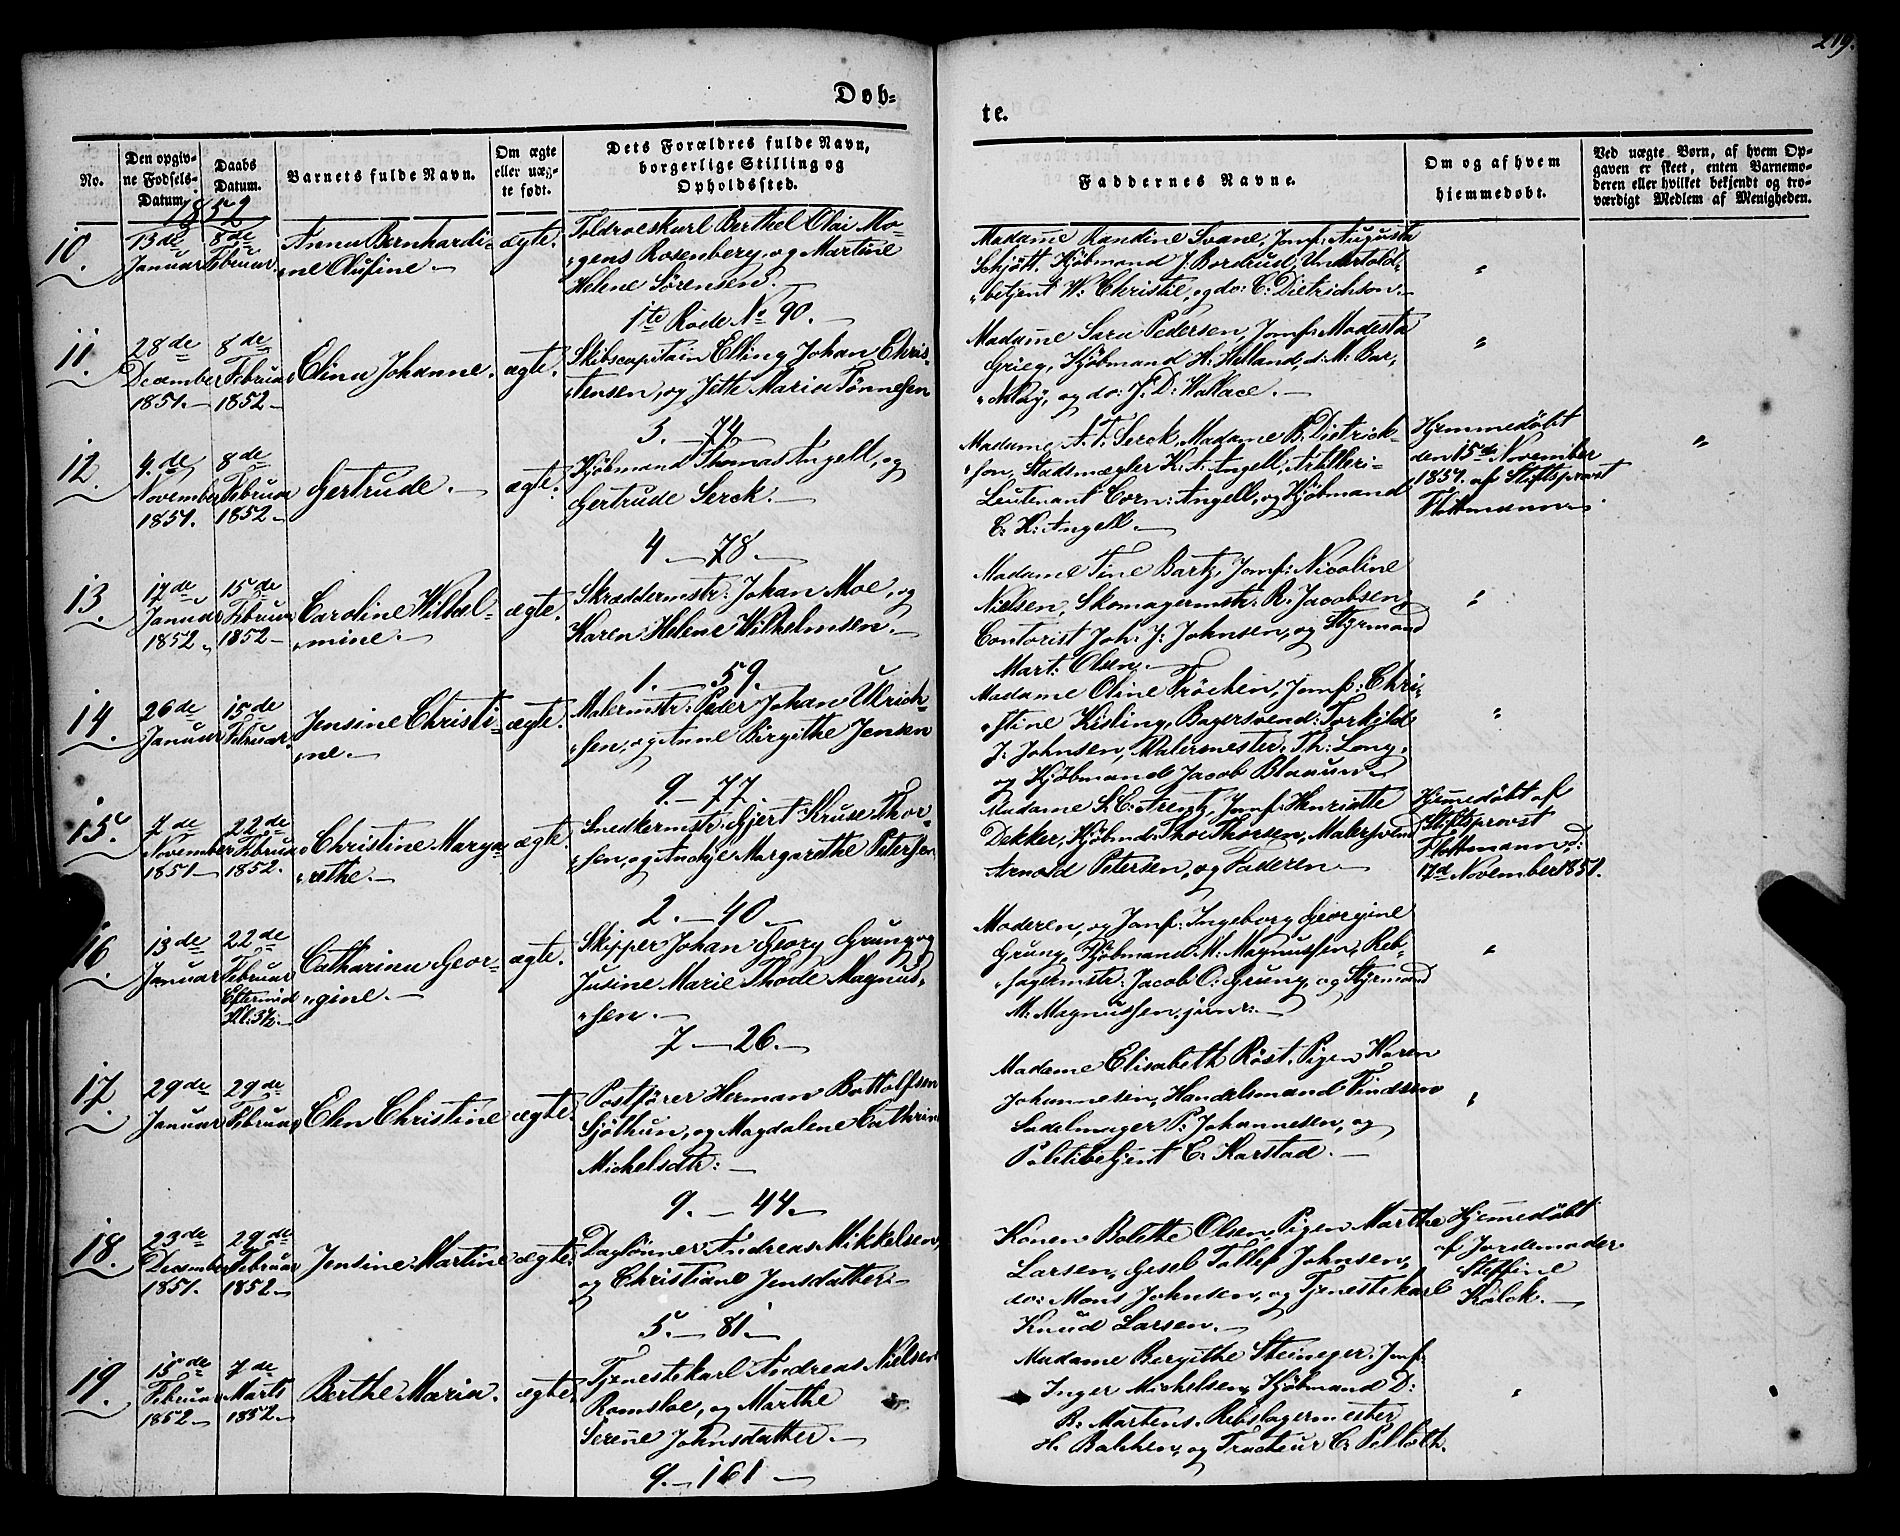 219.
Døb=
te.
No.
Den opgiv-
ne Fødsels-
Datum.
Daabs
Datum.
Barnets fulde Navn.
Om ægte
eller uæg-
te født.
Dets Forældres fulde Navn,
borgerlige Stilling og
Opholdssted.
Faddernes Navne.
Om og af hvem
hjemmedøbt.
Ved uægte Børn, af hvem Op-
gaven er skeet, enten Barnemo-
deren eller hvilket bekjendt og tro-
værdigt Medlem af Menigheden.
1852
10.
13de
Januar
8de
Februar.
Anna Bernhardi-
ne Olufine.
ægte.
Toldroeskarl Berthel Olai Mo-
gens Rosenberg, og Martine
Helene Sørensen.
1te Rode No 90.
Madame Randine Svane, Jomf: Augusta
Schjött, Kjöbmand J. Bordrud, Undertold-
betjent W: Christie, og do: C: Dietrichson.
"
11.
28de
December
1851.
8de
Februar
1852
Elina Johanne.
ægte.
Skibscapitain Elling Johan Chris-
tensen, og Jette Maria Tönnesen
3. — 74
Madame Sara Pedersen, Jomf: Modesta
Grieg, Kjöbmand H: Helland, d: M: Bar-
clay, og do: J: D: Wallace.
"
12.
4de
November
1851.
8de
Februar
1852
Gertrude.
ægte.
Kjöbmand Thomas Angell, og
Gertrude Serck.
4 — 78.
Madame A. T. Serck, Madame B. Dietrich-
son, Stadsmægler K. A. Angell, Artilleri-
Leutenant Corn: Angell, og Kjöbmand
C. K: Angell.
Hjemmedöbt
den 15de November
1851. af Stiftsprovst
Flottmann.
"
13.
17de
Januar
1852.
15de
Februar
1852
Caroline Wilhel-
mine.
ægte.
Skræddermstr: Johan Moe, og
Karen Helene Wilhelmsen.
1. — 59.
Madame Tine Bartz, Jomf: Nicoline
Nielsen, Skomagermstr: R. Jacobsen,
Contorist Joh: J: Johnsen, og Styrmand
Mart: Olsen.
"
14.
26de
Januar
15de
Februar.
Jensine Christi-
ne.
ægte.
Malermstr: Peder Johan Ulrich-
sen, og Anne Birgithe Jensen
9. — 77
Madame Oline Fröchen, Jomf: Chri-
stine Kisling, Bagersvend: Torkild
J: Johnsen, Malermester Th: Long,
og Kjöbmand Jacob Blaauw.
"
15.
7de
November
1851
22de
Februar
1852.
Christine Marga-
rethe.
ægte.
Snedkermstr: Gjert Kruse Thor-
sen, og Anchje Margarethe Petersen
2. — 40.
Madame S. C: Arentz, Jomf: Henriette
Dekker, Kjöbmd: Thor Thorsen, Malersvend
Arnold Petersen, og Faderen
Hjemedöbt af
Stiftsprovst
Flottmann, d:
17d November 1851.
16.
13de
Januar
22de
Februar
Eftermid
Kl: 3½.
Catharina Geor-
gine.
ægte.
Skipper Johan Georg Grung, og
Jusine Marie Thode Magnus-
sen.
7 — 26.
Moderen, og Jomf: Ingeborg Georgine
Grung, Kjöbmand M. Magnussen, Reb-
slagermstr: Jacob C: Grung, og Styrmand
M: Magnussen, junr:
"
17.
29de
Januar
29de
Februar
Elen Christine
ægte.
Postförer Herman Bottolfsen
Sjöthun, og Magdalene Cathrine
Michelsdtr:
9. — 44.
Madame Elisabeth Röst, Pigen Karen
Johannesen, Handelsmand Findsen
Sadelmager P: Johannesen, og
Politibetjent E: Karstad.
"
18.
23de
December
1851.
29de
Februar
1852.
Jensine Martine
ægte.
Daglönner Andreas Mikkelsen,
og Christiane Jensdatter.
5. — 81.
Konen Bolethe Olsen, Pigen Marthe
Larsen, Gesel Tollef Johnsen,
do: Mons Johnsen, og Tjenestekarl
Knud Larsen.
Hjemedöbt
af Jordemoder
Steffine
Kölck.
19.
15de
Februar
1852.
7de
Marts
1852.
Berthe Maria.
ægte.
Tjenestekarl Andreas Nielsen
Romsloe, og Marthe
Serene Johnsdatter.
9. — 161
Madame Bergithe Steineger, Jmf:
Inger Michelsen, Kjöbmand D:
B. Martens, Rebslagermester
H. Balchen, og Tracteur C: Pelloth.
"